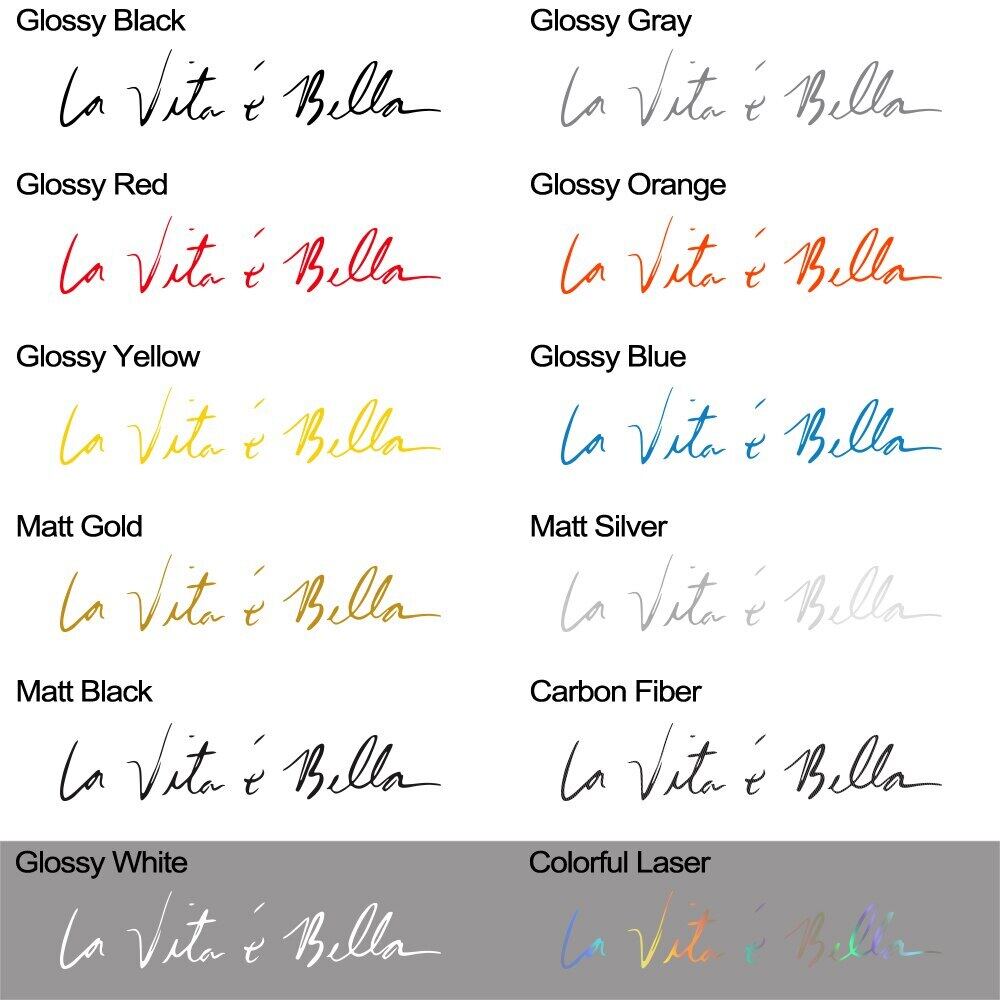 Glossy Black
Glossy Gray
La Vita é Bella
La Vita é Bella
Glossy Red
Glossy Orange
La Vita é Bella
La Vita é Bella
Glossy Yellow
Glossy Blue
La Vita é Bella
La Vita é Bella
Matt Gold
Matt Silver
La Vita é Bella
La Vita é Bella
Matt Black
Carbon Fiber
La Vita é Bella
La Vita é Bella
Glossy White
Colorful Laser
La Vita é Bella
La Vita é Bella